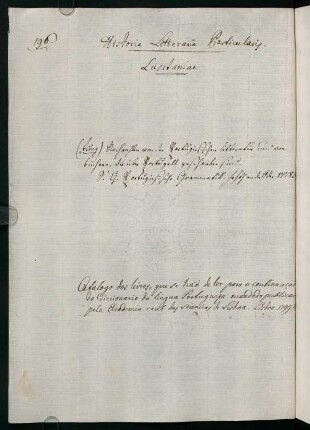 196.
Historia Litteraria Particularis
Lusitaniae
(Jung) Nachrichten von der Portugiesischen Litteratur und von
büchern, die über Portugall geschrieben sind.
S. Portugiesische Grammatik
Catalogo dos livros, que se haõ de ler para a continuaçaõ
do Diccionario da lingua Portugueza mandado publicar
pela Academia real das Sciencias de Lisboa. Lisboa